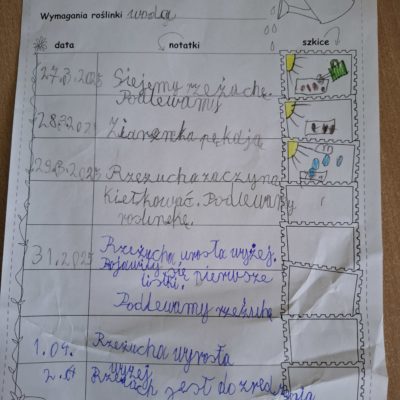 Wymagania roślinki wodą
data notatki szkice
27.3.2025 Siejemy rzeżuchę.
Podlewamy
28.3.202 Ziarenka pękają
29.3.2025 Rzeżucha zaczyna
kiełkować. Podlewamy
roślinkę.
31.2025 Rzeżucha urosła wyżej.
Pojawiły się pierwsze
listki.
Podlewamy rzeżuchę
1.04. Rzeżucha wyrosła
wyżej
2.04 jest do